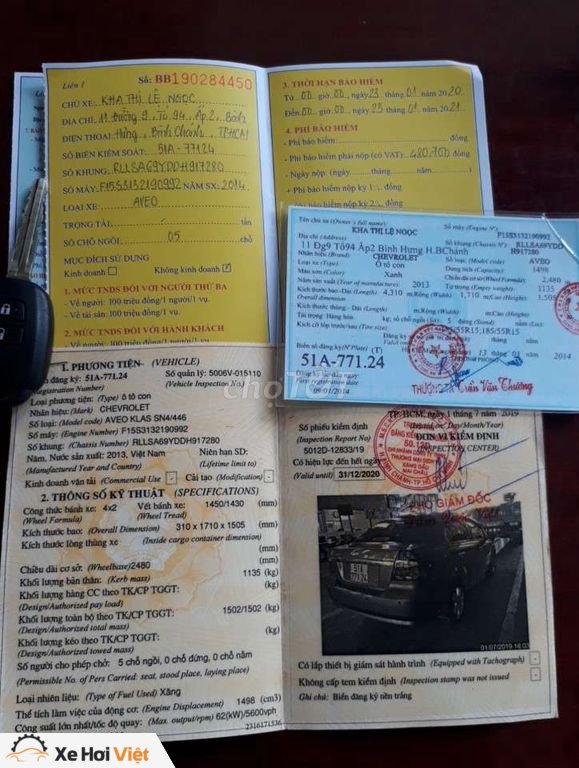 Liên 1
Số: BB190284450
CHỦ XE: KHA THỊ LỆ NGỌC
ĐỊA CHỈ: 11 Đường 9, Tổ 94, Ấp 2, Bình
ĐIỆN THOẠI: Hưng, Bình Chánh, TPHCM
SỐ BIỂN KIỂM SOÁT: 51A-77124
SỐ KHUNG: RLLSA69YDDH917280
SỐ MÁY: F15S3132190992 NĂM SX: 2014
LOẠI XE: AVEO
TRỌNG TẢI: tấn
SỐ CHỖ NGỒI: 05 chỗ
MỤC ĐÍCH SỬ DỤNG
Kinh doanh Không kinh doanh
1. MỨC TNDS ĐỐI VỚI NGƯỜI THỨ BA
- Về người: 100 triệu đồng/1 người/1 vụ.
- Về tài sản: 100 triệu đồng/1 vụ.
2. MỨC TNDS ĐỐI VỚI HÀNH KHÁCH
- Về người: 100 triệu đồng/1 người/1 vụ.
3. THỜI HẠN BẢO HIỂM
Từ 00 giờ 00 ngày 23 tháng 01 năm 2020
Đến 00 giờ 00 ngày 23 tháng 01 năm 2021
4. PHÍ BẢO HIỂM
- Phí bảo hiểm: đồng
- Phí bảo hiểm phải nộp (có VAT): 480.700 đồng
- Ngày nộp (ngày tháng năm )
+ Phí bảo hiểm nộp kỳ 1: đ
+ Phí bảo hiểm nộp kỳ 2:
Tên chủ xe (Owner's full name):
KHA THỊ LỆ NGỌC
Số máy (Engine N°)
F15S3132190992
Địa chỉ (Address)
11 Đg9 Tổ94 Ấp2 Bình Hưng H.BChánh
Số khung (Chassis N°)
RLLSA69YDD
H917280
Nhãn hiệu (Brand) CHEVROLET
Số loại (Model code) AVEO
Loại xe (Type) Ô tô con
Dung tích (Capacity) 1498
Màu sơn (Color) Xanh
Năm sản xuất (Year of manufacture) 2013
Tự trọng (Empty weight) 1135
Kích thước bao: Dài (Length) 4,310 m; Rộng (Width) 1,710 m; Cao (Height) 1,505
Overall dimension
Biển số đăng ký (N° Plate)
51A-771.24 (T)
Đăng ký lần đầu ngày
First registration date
09/01/2014
13 tháng 01 năm 2014
THƯỢNG TÁ Trần Văn Thương
1. PHƯƠNG TIỆN (VEHICLE)
Biển đăng ký: 51A-771.24
Số quản lý: 5006V-015110
(Registration Number)
(Vehicle Inspection No.)
Loại phương tiện: (Type) ô tô con
Nhãn hiệu: (Mark) CHEVROLET
Số loại: (Model code) AVEO KLAS SN4/446
Số máy: (Engine Number) F15S3132190992
Số khung: (Chassis Number) RLLSA69YDDH917280
Năm, Nước sản xuất: 2013, Việt Nam
Niên hạn SD:
(Manufactured Year and Country)
(Lifetime limit to)
Kinh doanh vận tải (Commercial Use) -
Cải tạo (Modification) -
2. THÔNG SỐ KỸ THUẬT (SPECIFICATIONS)
Công thức bánh xe: 4x2
Vết bánh xe: 1450/1430 (mm)
(Wheel Formula)
(Wheel Tread)
Kích thước bao: (Overall Dimension) 310 x 1710 x 1505 (mm)
Kích thước lòng thùng xe (Inside cargo container dimension)
(mm)
Chiều dài cơ sở: (Wheelbase) 2480 (mm)
Khối lượng bản thân: (Kerb mass) 1135 (kg)
Khối lượng hàng CC theo TK/CP TGGT: (kg)
(Design/Authorized pay load)
Khối lượng toàn bộ theo TK/CP TGGT: 1502/1502 (kg)
(Design/Authorized total mass)
Khối lượng kéo theo TK/CP TGGT: (kg)
(Design/Authorized towed mass)
Số người cho phép chở: 5 chỗ ngồi, 0 chỗ đứng, 0 chỗ nằm
(Permissible No. of Pers Carried: seat, stood place, laying place)
Loại nhiên liệu: (Type of Fuel Used) Xăng
Thể tích làm việc của động cơ: (Engine Displacement) 1498 (cm3)
Công suất lớn nhất/tốc độ quay: (Max. output/rpm) 62(kW)/5600vph
2316171536
TP.HCM, ngày 1 tháng 7 năm 2019
Số phiếu kiểm định
(Issued on: Day/Month/Year)
(Inspection Report No)
ĐƠN VỊ KIỂM ĐỊNH
5012D-12833/19
(INSPECTION CENTER)
Có hiệu lực đến hết ngày
(Valid until) 31/12/2020
PHÓ GIÁM ĐỐC
51A
771.24
01/07/2019 16:03
Có lắp thiết bị giám sát hành trình (Equipped with Tachograph) -
Không cấp tem kiểm định (Inspection stamp was not issued) -
Ghi chú: Biển đăng ký nền trắng
Xe Hơi Việt